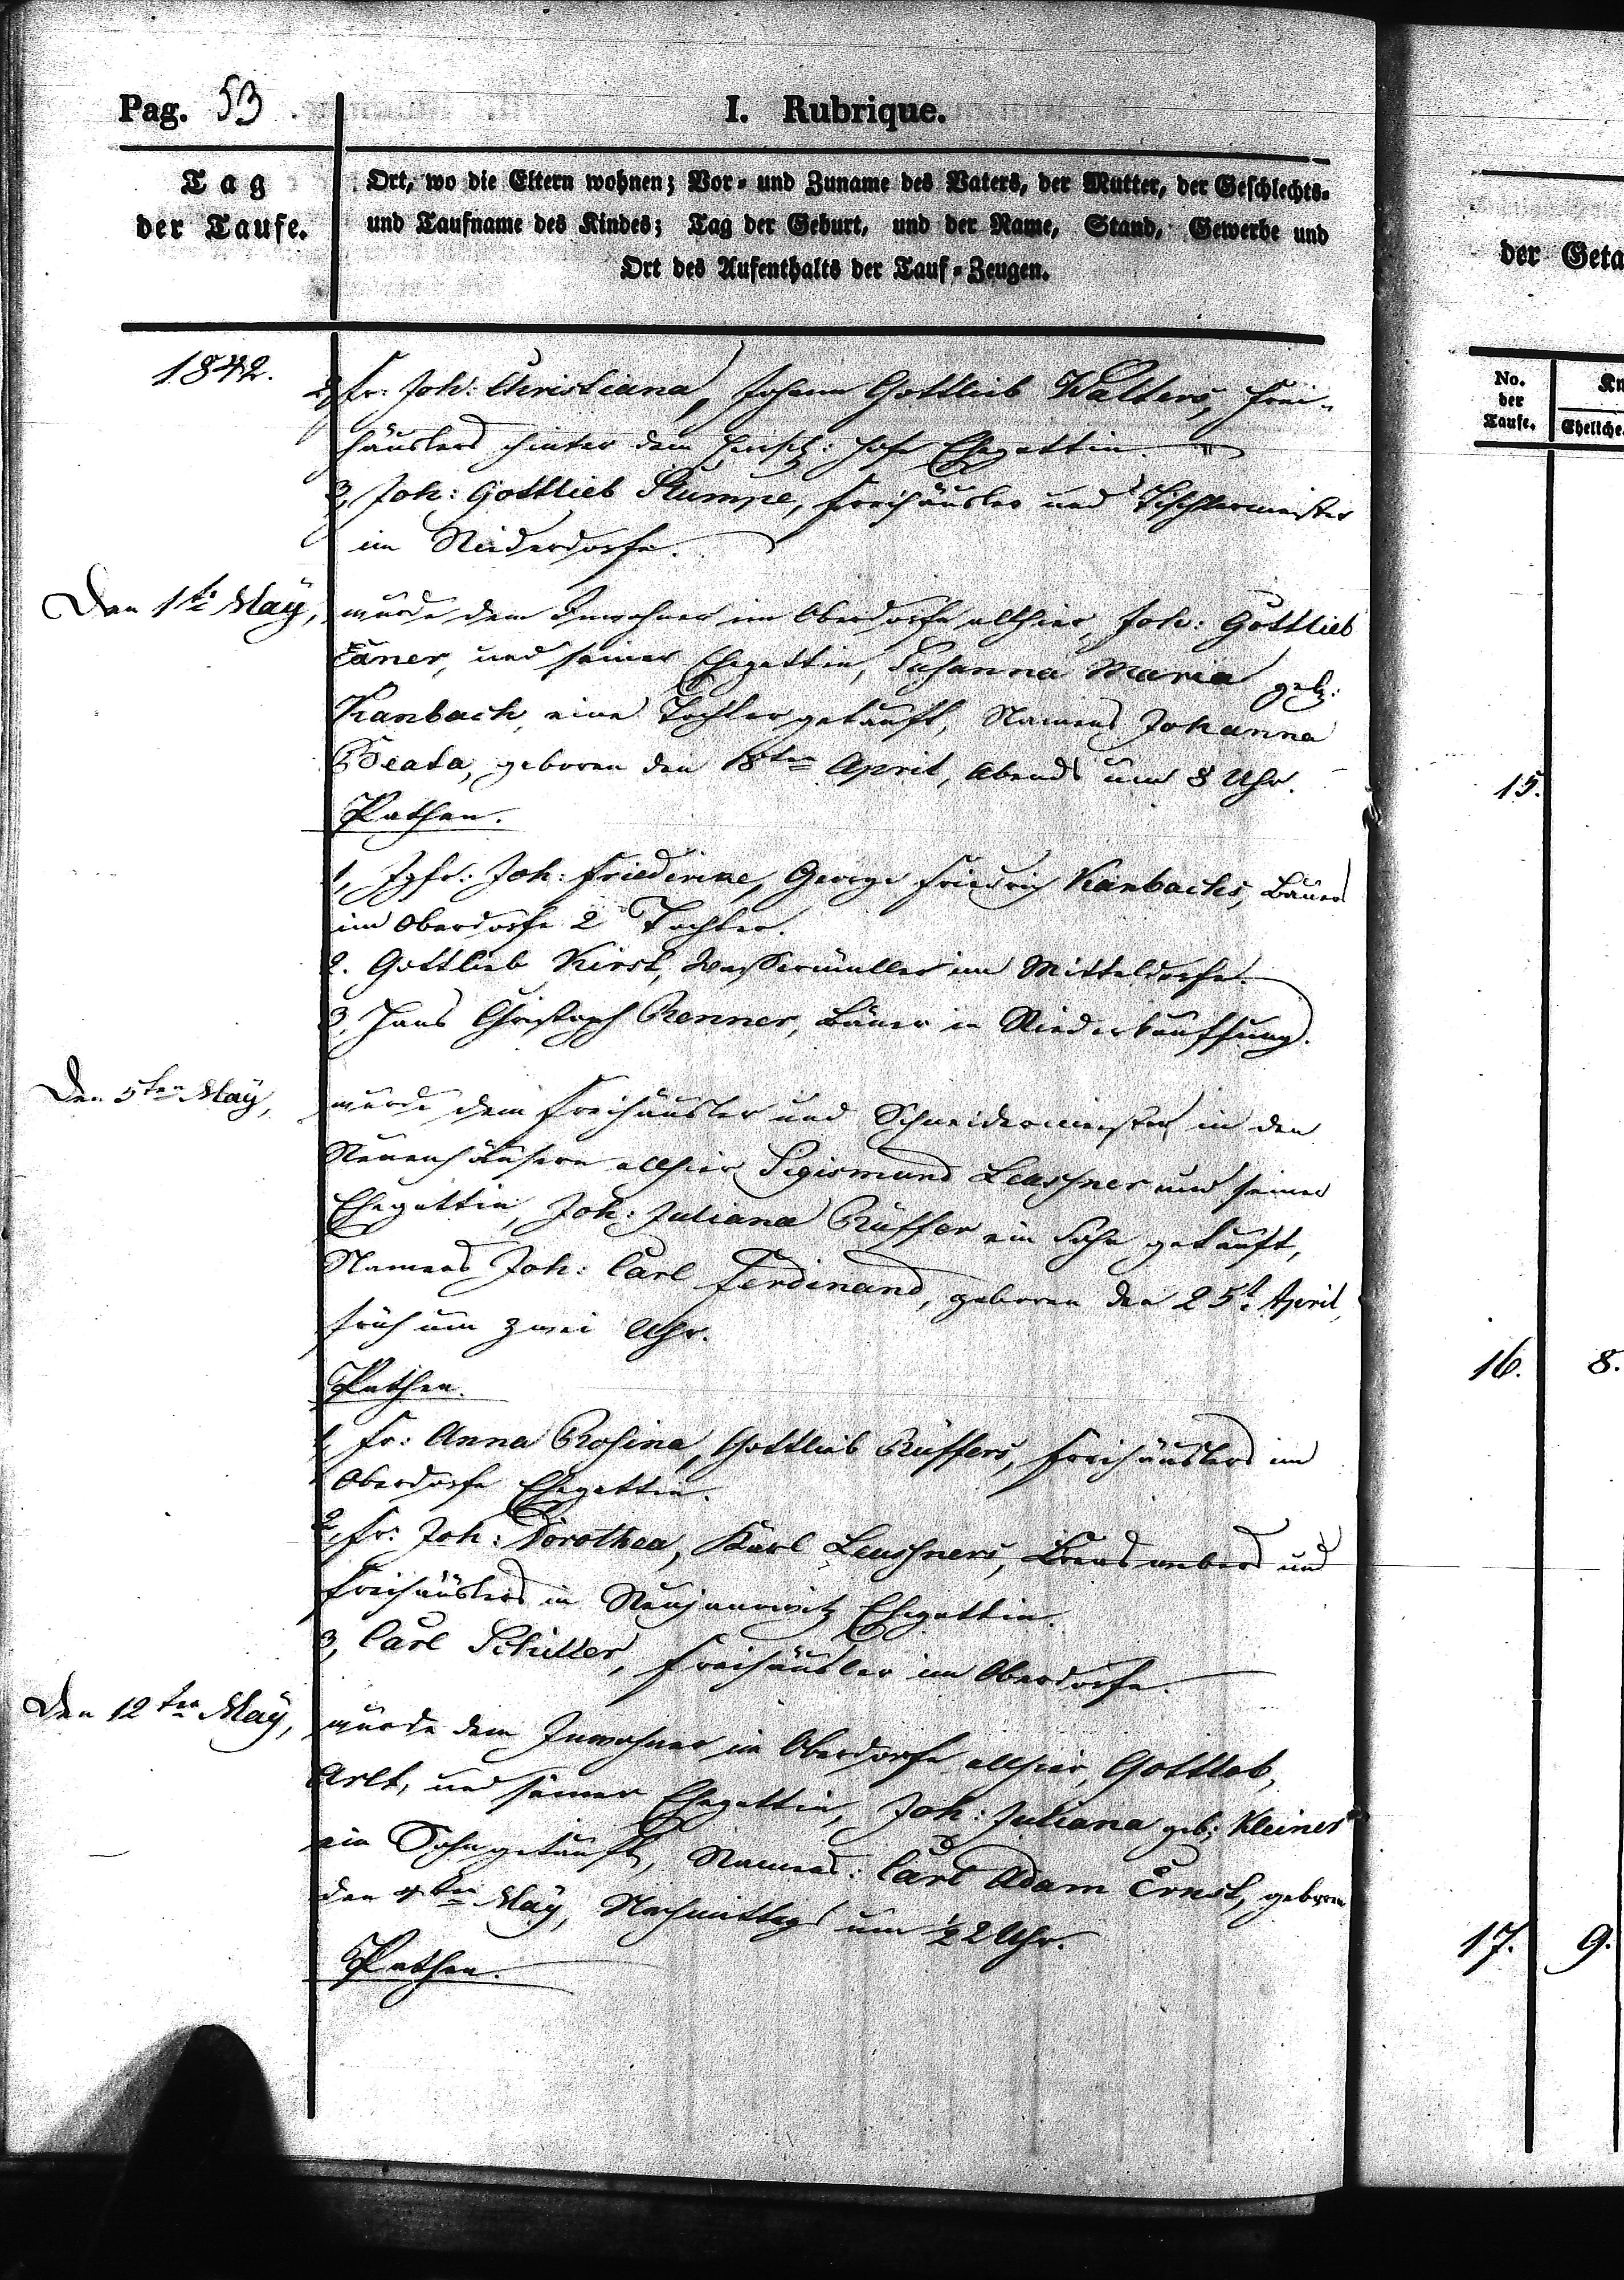 Pag. 53
I. Rubrique.
Tag
der Taufe.
Ort, wo die Eltern wohnen; Vor- und Zuname des Vaters, der Mutter, der Geschlechts-
und Taufname des Kindes; Tag der Geburt, und der Name, Stand, Gewerbe und
Ort des Aufenthalts der Tauf-Zeugen.
1842.
2, Fr: Joh: Christiana, Johann Gottlieb Walters, Frei-
häuslers hinter dem Hofe Ehegattin.
3, Joh: Gottlieb Stumpe, Freihäusler und Tischlermeister
im Niederdorfe.
Den 1te May,
wurde dem Inwohner im Oberdorfe allhier, Joh: Gottlieb
und seiner Ehegattin, Susanna Maria geb:
Kanbach, eine Tochter getauft, Namens Johanna
Beata, geboren den 18ten April, Abends um 8 Uhr.
Pathen.
1, Jgfr: Joh: Friederike, George Friedrich Kanbachs, Bauers
im Oberdorfe 2te Tochter.
2. Gottlieb Kirst, Wassermüller im Mitteldorfe.
3, Hans Christoph Renner, Bauer in Niederkauffung.
Den 5ten May,
wurde dem Freihäusler und Schneidermeister in den
Neuenhäusern allhier Sigismund Leuschner und seiner
Ehegattin, Joh: Juliana Rüffer ein Sohn getauft,
Namens Joh: Carl Ferdinand, geboren den 25t April,
früh um zwei Uhr.
Pathen.
1, Fr: Anna Rosina, Gottlieb Rüffers, Freihäuslers im
Oberdorfe Ehegattin.
2, Fr: Joh: Dorothea, Karl Leuschners, und
Freihäuslers in Neujannowitz Ehegattin.
3, Carl Schiller, Freihäusler im Oberdorfe.
Den 12ten May,
wurde dem Inwohner im Oberdorfe allhier, Gottlob,
Arlt, und seiner Ehegattin, Joh: Juliana geb: Kleiner
ein Sohn getauft, Namens: Carl Adam Ernst, geboren
den May, Nachmittags um 1/2 2 Uhr.
Pathen.
der Geta
No.
der
Taufe.
Kn
Eheliche
15.
16. 8.
17. 9.